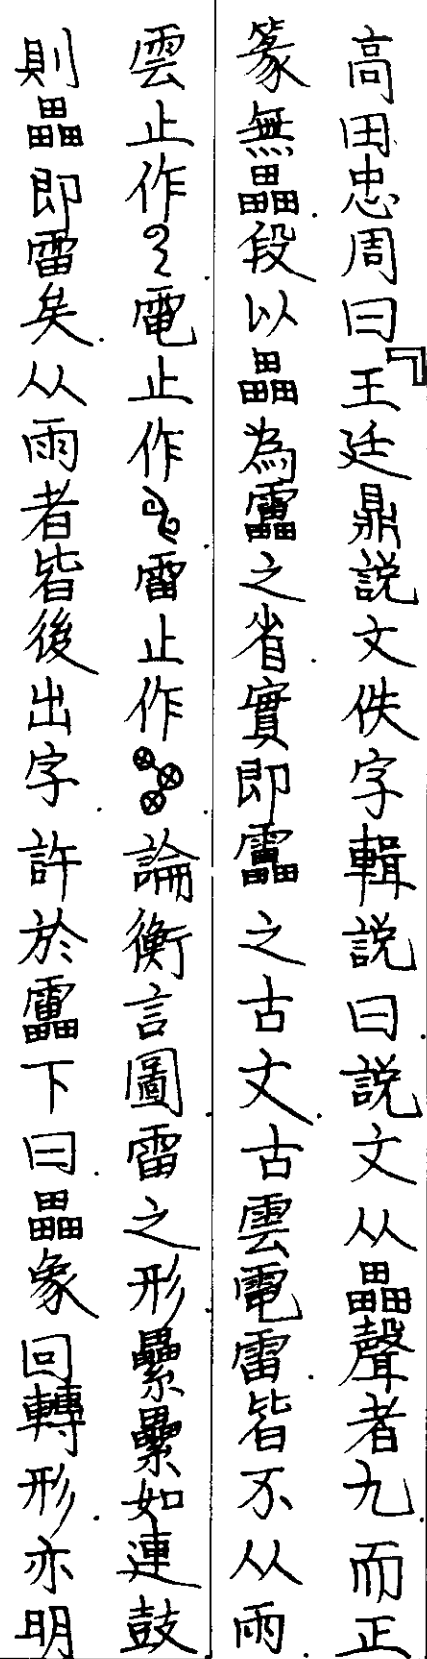 高田忠周曰『王廷鼎説文佚字輯説曰説文从畾聲者九而正
篆無畾段以畾為靁之省實即靁之古文古雲電雷皆不从雨
雲止作電止作雷止作論衡言圖雷之形纍纍如連鼓
則畾即雷矣从雨者皆後出字許於靁下曰畾象回轉形亦明